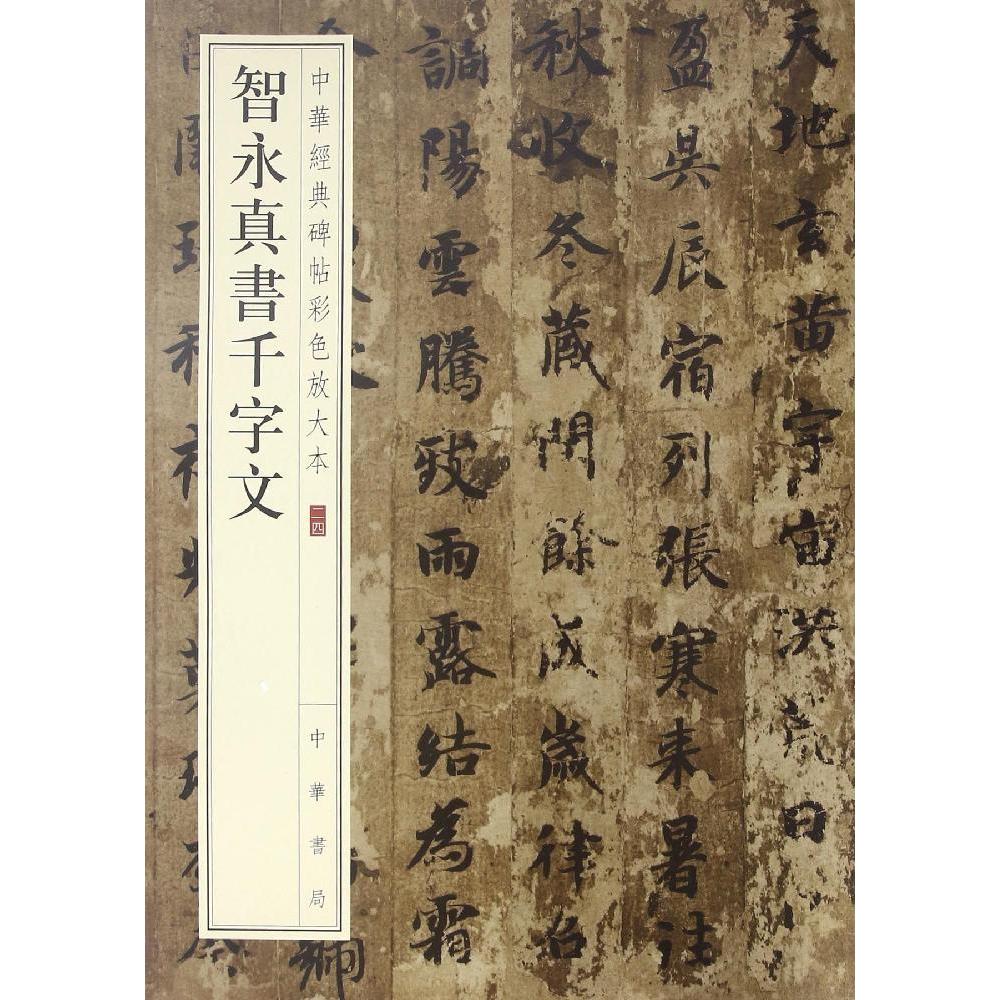 天地玄黄宇宙洪荒日月
盈昃辰宿列張寒来暑往
秋收冬藏閏餘成歲律召
調陽雲騰致雨露結為霜
中華經典碑帖彩色放大本
二四
中華書局
智永真書千字文